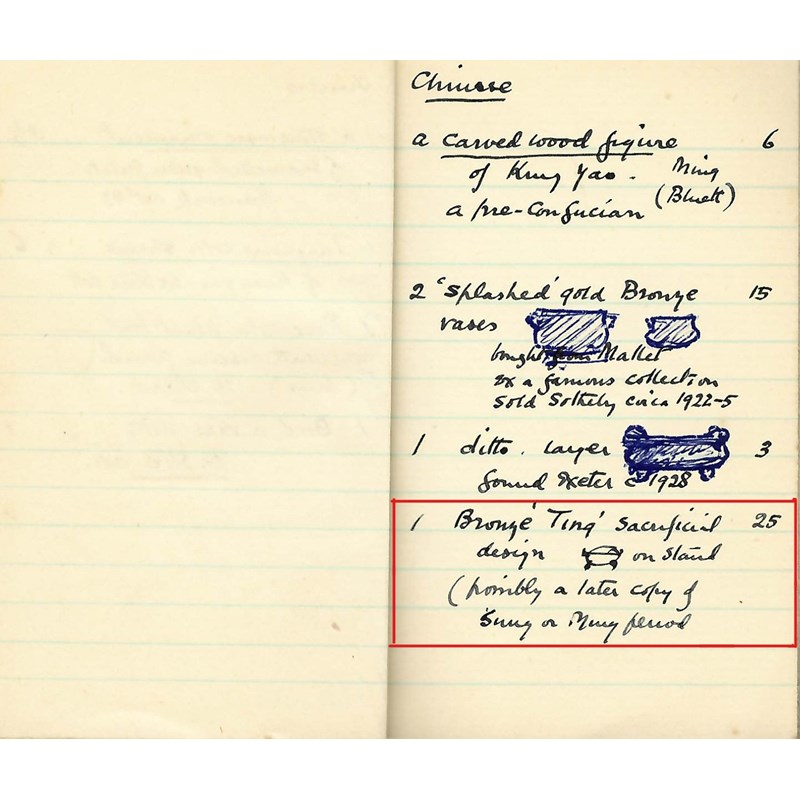 Chinese
a carved wood figure 6
of Kung Yao. Ming
(Bluett)
a pre-Confucian
2 'splashed' gold Bronze 15
vases
bought from Mallet
ex a famous collection
Sold Sotheby circa 1922-5
1 ditto. larger 3
found Exeter c 1928
1 Bronze 'Ting' sacrificial 25
design on stand
(possibly a later copy of
Sung or Ming period